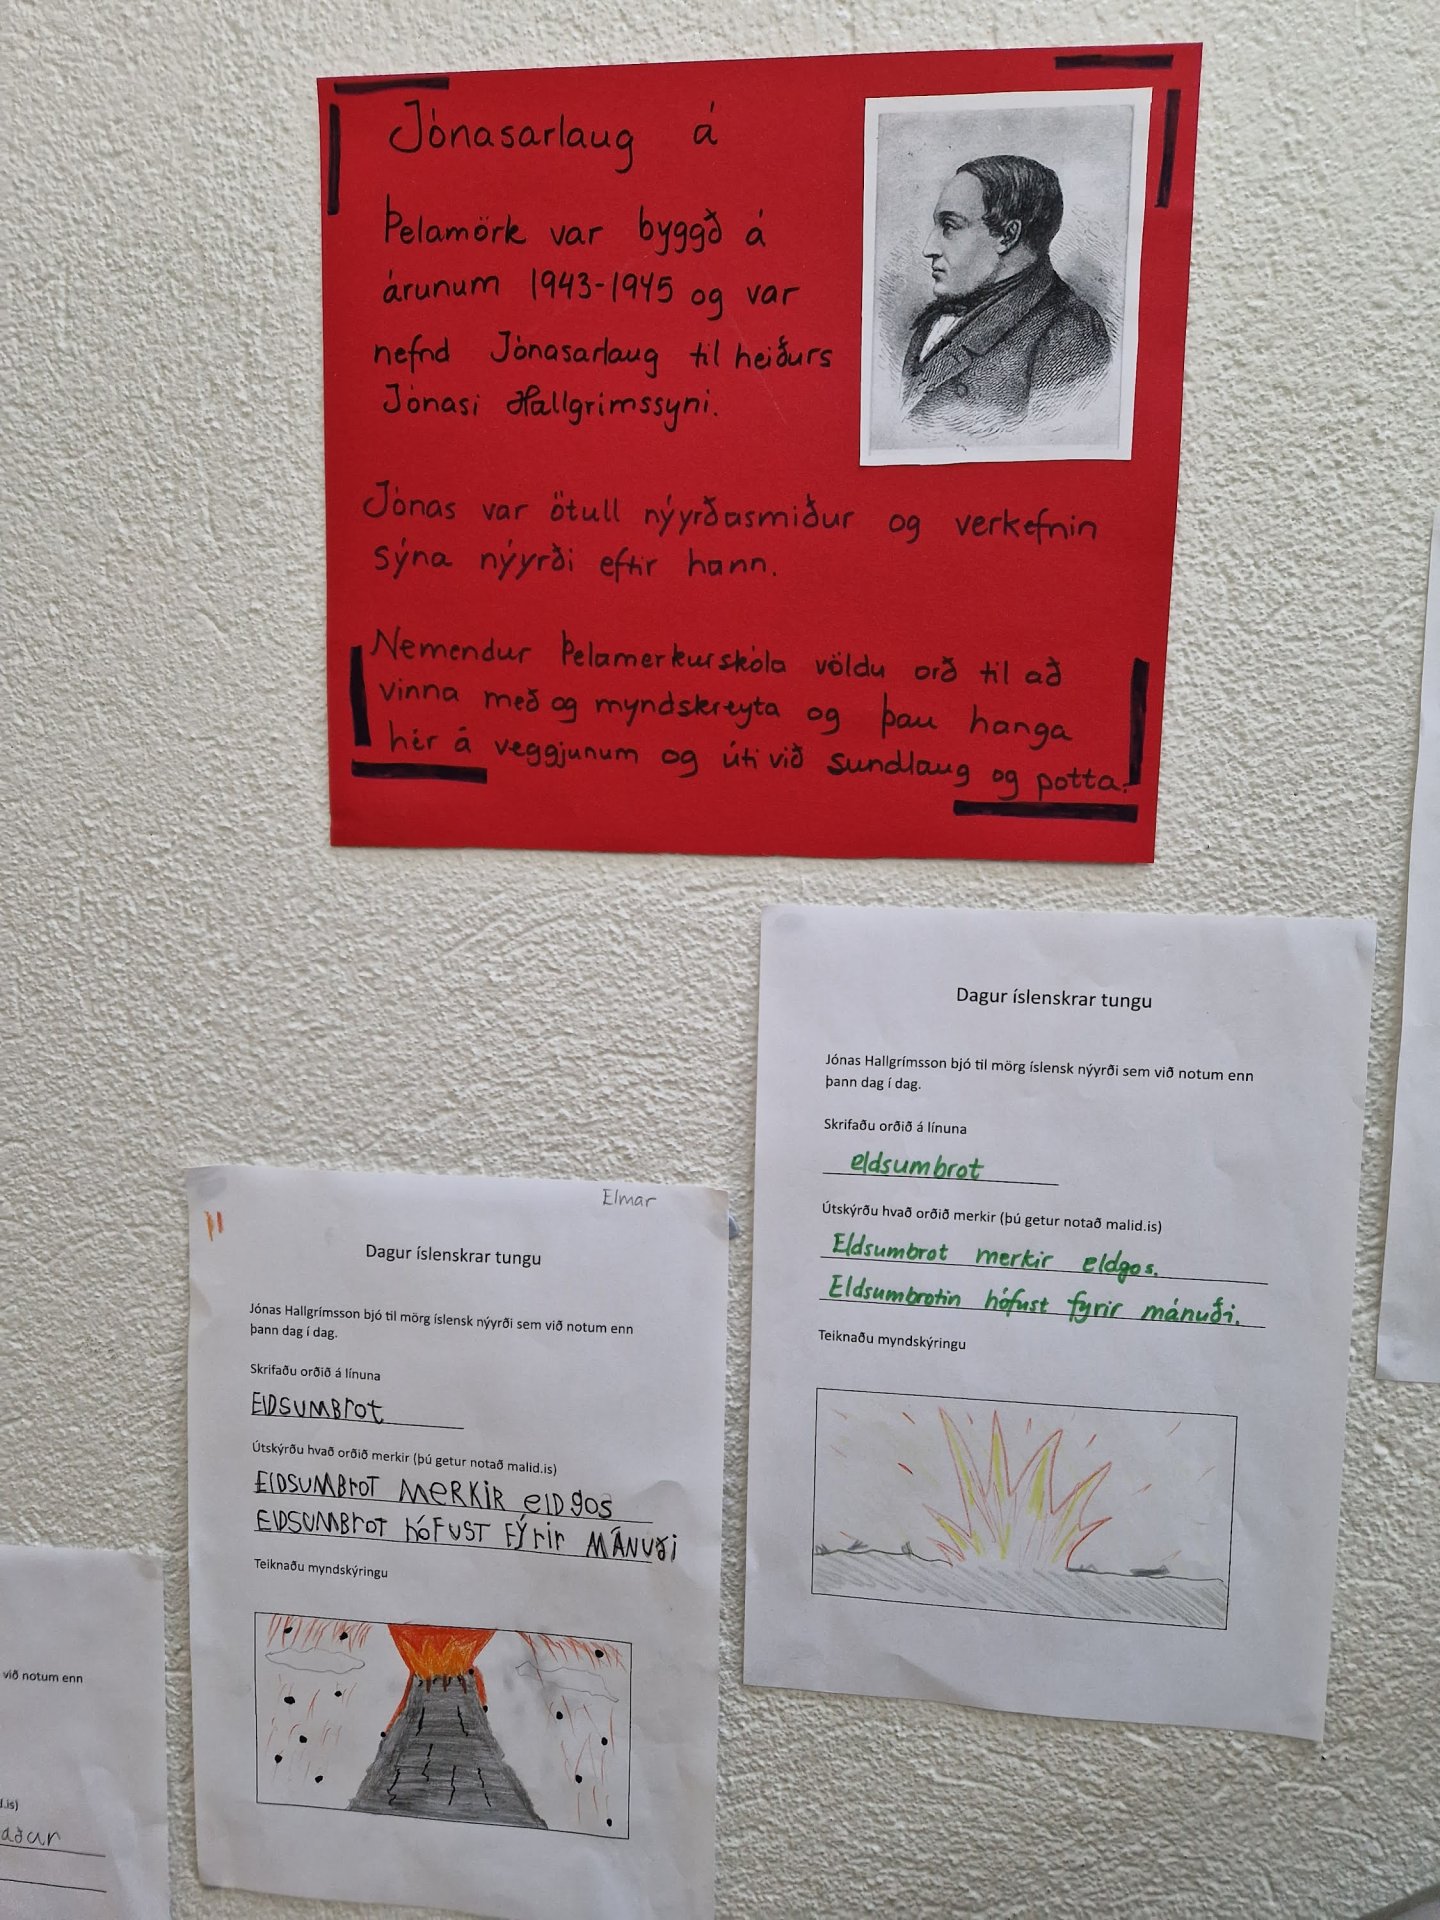 Jónasarlaug á
Þelamörk var byggð á
árunum 1943-1945 og var
nefnd Jónasarlaug til heiðurs
Jónasi Hallgrímssyni.
Jónas var ötull nýyrðasmiður og verkefnin
sýna nýyrði eftir hann.
Nemendur Þelamerkurskóla völdu orð til að
vinna með og myndskreyta og þau hanga
hér á veggjunum og úti við sundlaug og potta.
Dagur íslenskrar tungu
Jónas Hallgrímsson bjó til mörg íslensk nýyrði sem við notum enn
þann dag í dag.
Skrifaðu orðið á línuna
eldsumbrot
Útskýrðu hvað orðið merkir (þú getur notað malid.is)
Eldsumbrot merkir eldgos.
Eldsumbrotin hófust fyrir mánuði.
Teiknaðu myndskýringu
Elmar
Dagur íslenskrar tungu
Jónas Hallgrímsson bjó til mörg íslensk nýyrði sem við notum enn
þann dag í dag.
Skrifaðu orðið á línuna
ElDSUMBrot
Útskýrðu hvað orðið merkir (þú getur notað malid.is)
ElDSUMBrOT MeRKiR elDgos
ElDSUMBrOT hóFUST FÝrir MÁNUði
Teiknaðu myndskýringu
við notum enn
d.is)
aður